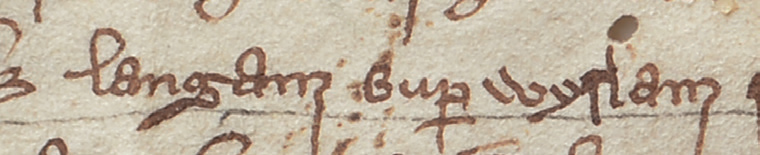 langam sup wyslam